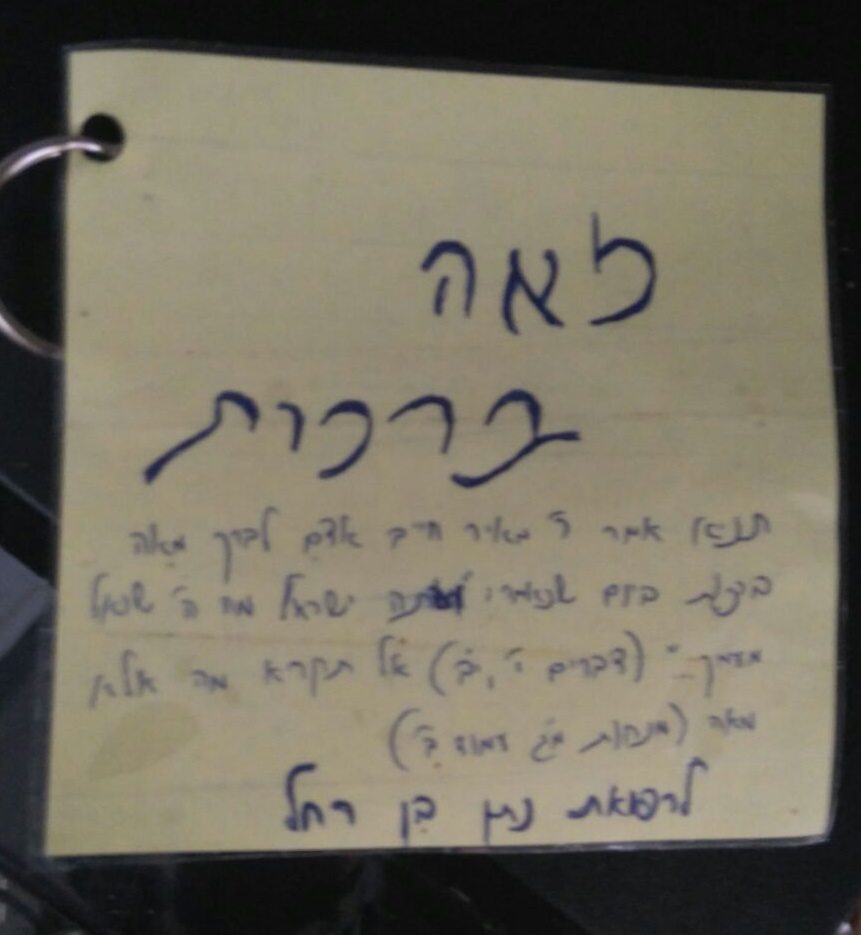 לאה
ברכות
תניא אמר ר' מאיר חייב אדם לברך מאה
ברכות ביום שנאמר: "ועתה ישראל מה ה' שואל
מעמך" (דברים י', יב) אל תקרא מה אלא
מאה (מנחות מ"ג עמוד ב')
לרפואת נתן בן רחל